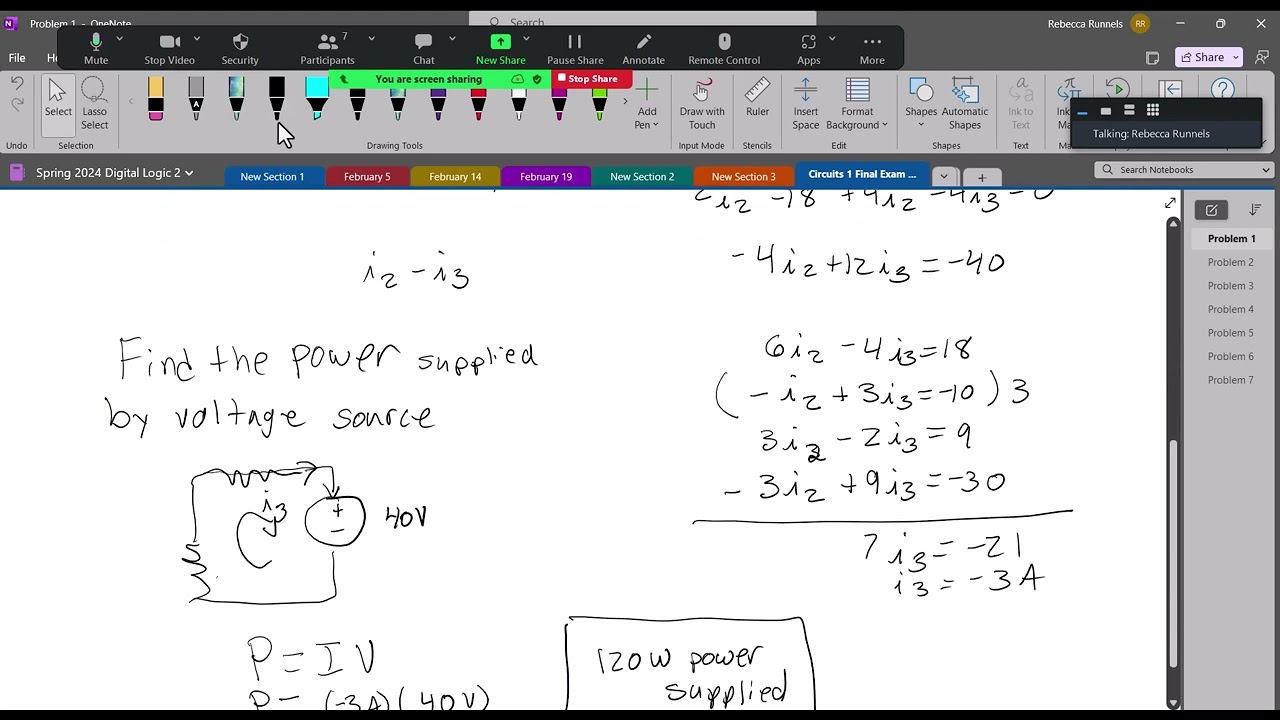 Problem 1 - OneNote
Search
Rebecca Runnels
RR
Mute
Stop Video
Security
7
Participants
Chat
New Share
Pause Share
Annotate
Remote Control
Apps
More
File
Share
You are screen sharing
Stop Share
Select
Lasso Select
Add Pen
Draw with Touch
Ruler
Insert Space
Format Background
Shapes
Automatic Shapes
Ink to Text
Talking: Rebecca Runnels
Undo
Selection
Drawing Tools
Input Mode
Stencils
Edit
Shapes
Text
Spring 2024 Digital Logic 2
New Section 1
February 5
February 14
February 19
New Section 2
New Section 3
Circuits 1 Final Exam ...
Search Notebooks
Problem 1
Problem 2
Problem 3
Problem 4
Problem 5
Problem 6
Problem 7
i2 - i3
-4i2 +12i3 = -40
Find the power supplied
by voltage source
6i2 -4i3 = 18
( - i2 + 3i3 = -10 ) 3
3i2 - 2i3 = 9
- 3i2 + 9i3 = -30
7 i3 = -21
i3 = -3A
i3
+
-
40V
P = IV
P = (-3A)(40V)
120W power
supplied